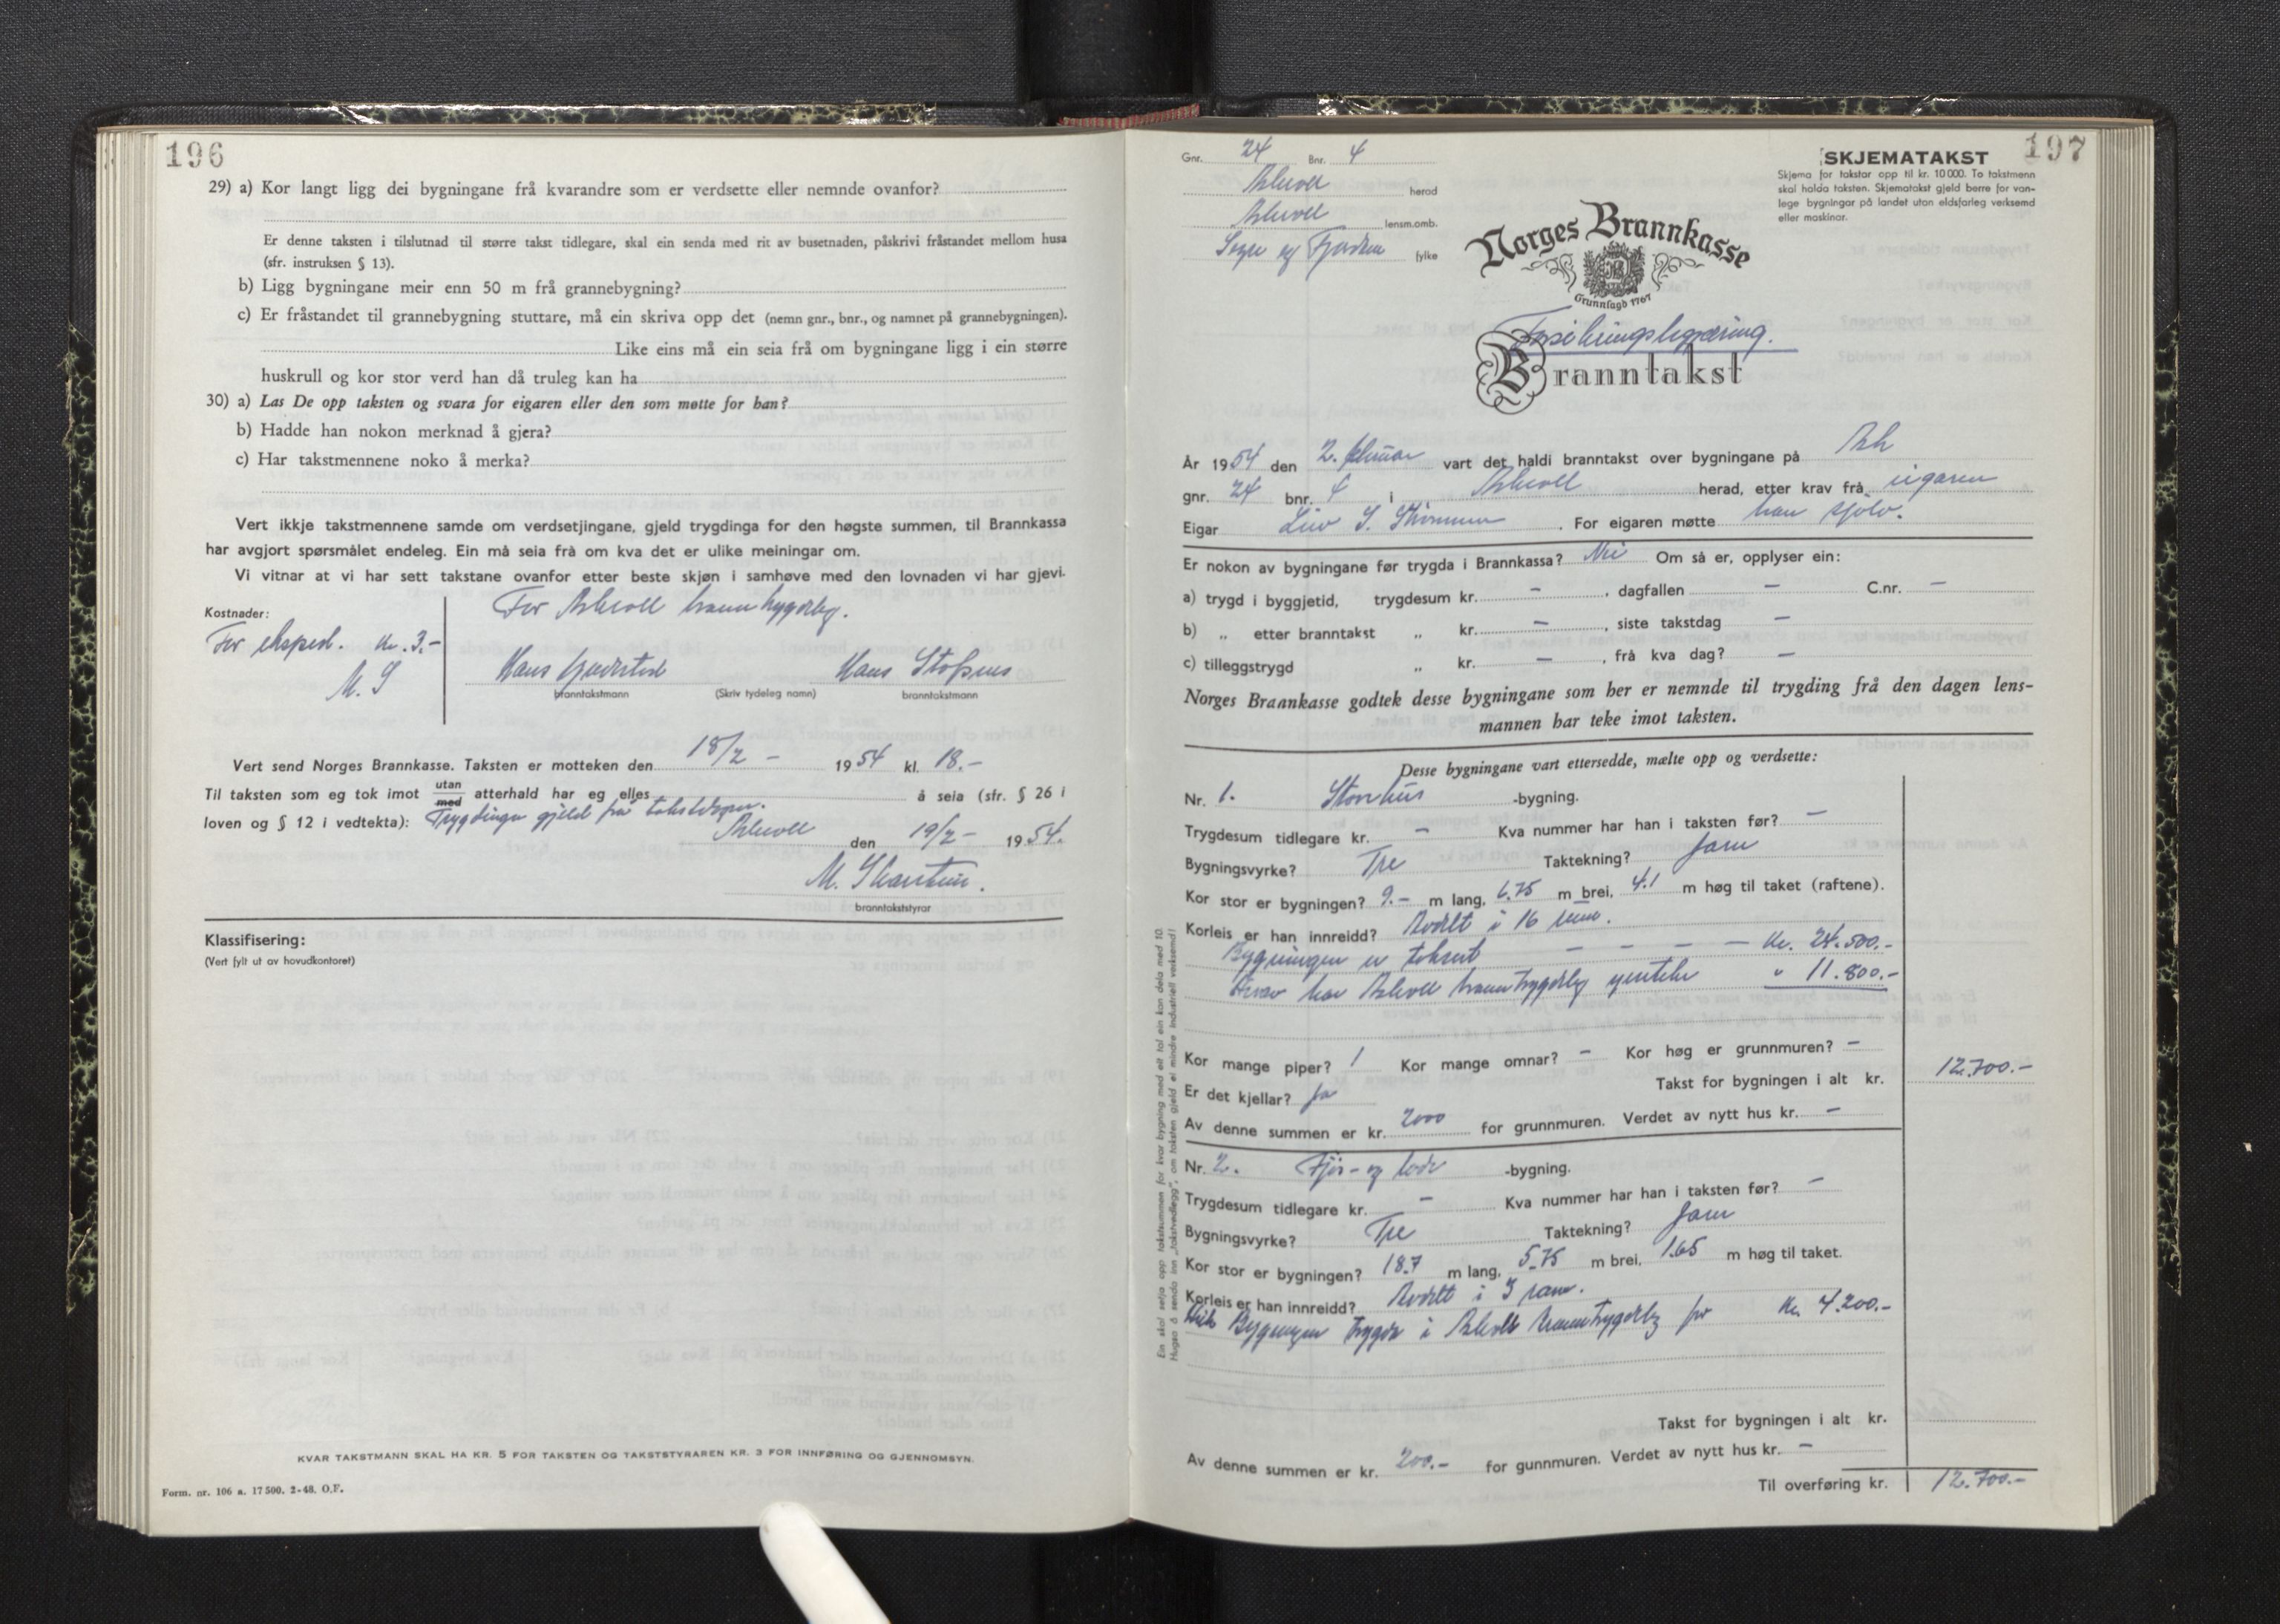 196
29) a) Kor langt ligg dei bygningane frå kvarandre som er verdsette eller nemnde ovanfor?
Er denne taksten i tilslutnad til større takst tidlegare, skal ein senda med rit av busetnaden, påskrivi fråstandet mellom husa
(sfr. instruksen § 13).
b) Ligg bygningane meir enn 50 m frå grannebygning?
c) Er fråstandet til grannebygning stuttare, må ein skriva opp det (nemn gnr., bnr., og namnet på grannebygningen).
Like eins må ein seia frå om bygningane ligg i ein større
huskrull og kor stor verd han då truleg kan ha
30) a) Las De opp taksten og svara for eigaren eller den som møtte for han?
b) Hadde han nokon merknad å gjera?
c) Har takstmennene noko å merka?
Vert ikkje takstmennene samde om verdsetjingane, gjeld trygdinga for den høgste summen, til Brannkassa
har avgjort spørsmålet endeleg. Ein må seia frå om kva det er ulike meiningar om.
Vi vitnar at vi har sett takstane ovanfor etter beste skjøn i samhøve med den lovnaden vi har gjevi.
Kostnader:
For Askvoll branntrygdelag.
For eksped. kr. 3.-
M. S
Hans Hans
branntakstmann (Skriv tydeleg namn) branntakstmann
Vert send Norges Brannkasse. Taksten er motteken den 18/2 - 1954 kl. 18.-
Til taksten som eg tok imot utan med atterhald har eg elles å seia (sfr. § 26 i
loven og § 12 i vedtekta): Trygdinga gjeld frå takstdagen.
Askvoll den 19/2 - 1954.
M.
branntakststyrar
Klassifisering:
(Vert fylt ut av hovudkontoret)
KVAR TAKSTMANN SKAL HA KR. 5 FOR TAKSTEN OG TAKSTSTYRAREN KR. 3 FOR INNFØRING OG GJENNOMSYN.
Form. nr. 106 a. 17 500. 2-48. O.F.
197
Gnr. 24 Bnr. 4
Askvoll herad
Askvoll lensm.omb.
Sogn og Fjordane fylke
SKJEMATAKST
Skjema for takstar opp til kr. 10 000. To takstmenn
skal halda taksten. Skjematakst gjeld berre for van-
lege bygningar på landet utan eldsfarleg verksemd
eller maskinar.
Norges Brannkasse
Grunnlagd 1767
Forsikringsbegjæring.
Branntakst
År 1954 den 2. februar vart det haldi branntakst over bygningane på Ask
gnr. 24 bnr. 4 i Askvoll herad, etter krav frå eigaren
Eigar S. For eigaren møtte han sjølv.
Er nokon av bygningane før trygda i Brannkassa? Nei Om så er, opplyser ein:
a) trygd i byggjetid, trygdesum kr. - , dagfallen - C.nr. -
b) „ etter branntakst „ kr. - , siste takstdag -
c) tilleggstrygd „ kr. - , frå kva dag? -
Norges Brannkasse godtek desse bygningane som her er nemnde til trygding frå den dagen lens-
mannen har teke imot taksten.
Desse bygningane vart ettersedde, mælte opp og verdsette:
Nr. 1. Storhus -bygning.
Trygdesum tidlegare kr. - Kva nummer har han i taksten før? -
Bygningsvyrke? Tre Taktekning? Jarn
Kor stor er bygningen? 9.- m lang, 6.75 m brei, 4.1 m høg til taket (raftene).
Korleis er han innreidd? Avdelt i 16 rum.
Bygningen er taksert - - - - Kr. 24.500.-
Herav har Askvoll branntrygdelag " 11.800.-
Kor mange piper? 1 Kor mange omnar? - Kor høg er grunnmuren? -
Er det kjellar? Ja Takst for bygningen i alt kr. 12.700.-
Av denne summen er kr. 2000 for grunnmuren. Verdet av nytt hus kr. -
Nr. 2. Fjøs- og løde -bygning.
Trygdesum tidlegare kr. - Kva nummer har han i taksten før? -
Bygningsvyrke? Tre Taktekning? Jarn
Kor stor er bygningen? 18.7 m lang, 5.75 m brei, 1.65 m høg til taket.
Korleis er han innreidd? Avdelt i 3 rum.
Bygningen trygda i Askvoll branntrygdelag for Kr. 4.200.-
Takst for bygningen i alt kr.
Av denne summen er kr. 200.- for gunnmuren. Verdet av nytt hus kr. -
Til overføring kr. 12.700.-
Ein skal setja opp takstsummen for kvar bygning med eit tal ein kan dela med 10.
Hugsa å senda inn „takstvedlegg", om taksten gjeld ei mindre industriell verksemd!